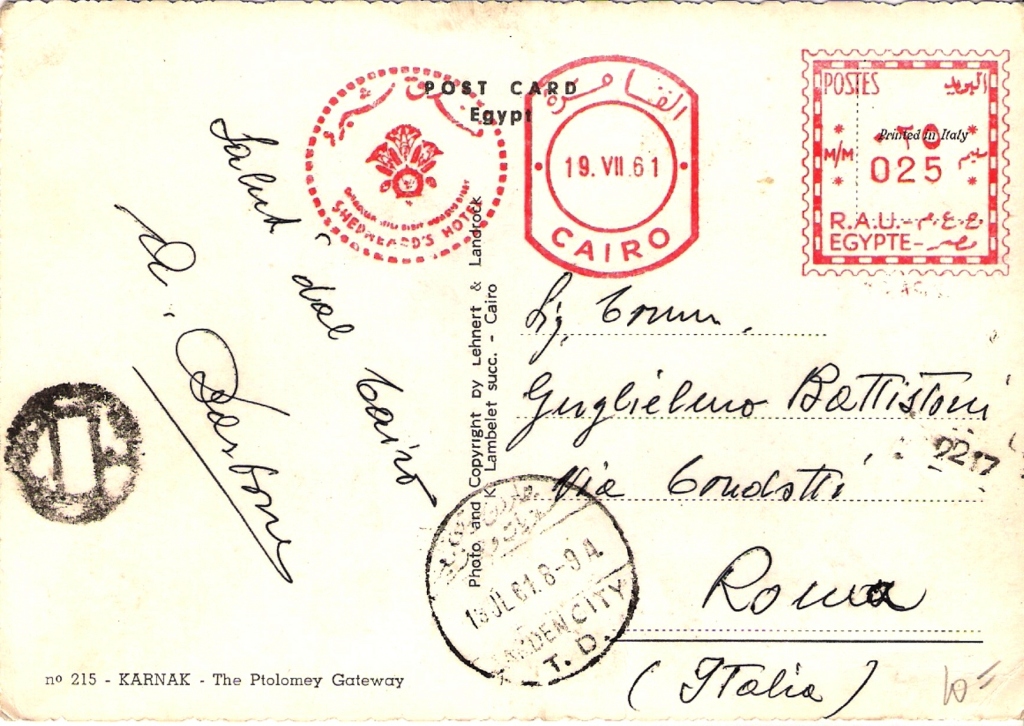 POST CARD
Egypt
SHEPHEARD'S HOTEL
القاهرة
19.VII.61
CAIRO
POSTES البريد
Printed in Italy
٠٢٥
M/M 025 مليم
R.A.U.-ج.ع.م
EGYPTE-مصر
Saluti dal Cairo
Photo, and Copyright by Lehnert & Landrock
K. Lambelet succ. - Cairo
Sig. Comm.
Guglielmo Battistoni
Via Condotti
2217
Roma
(Italia)
JL 61.8-9A
GARDEN CITY
T.D.
nº 215 - KARNAK - The Ptolomey Gateway